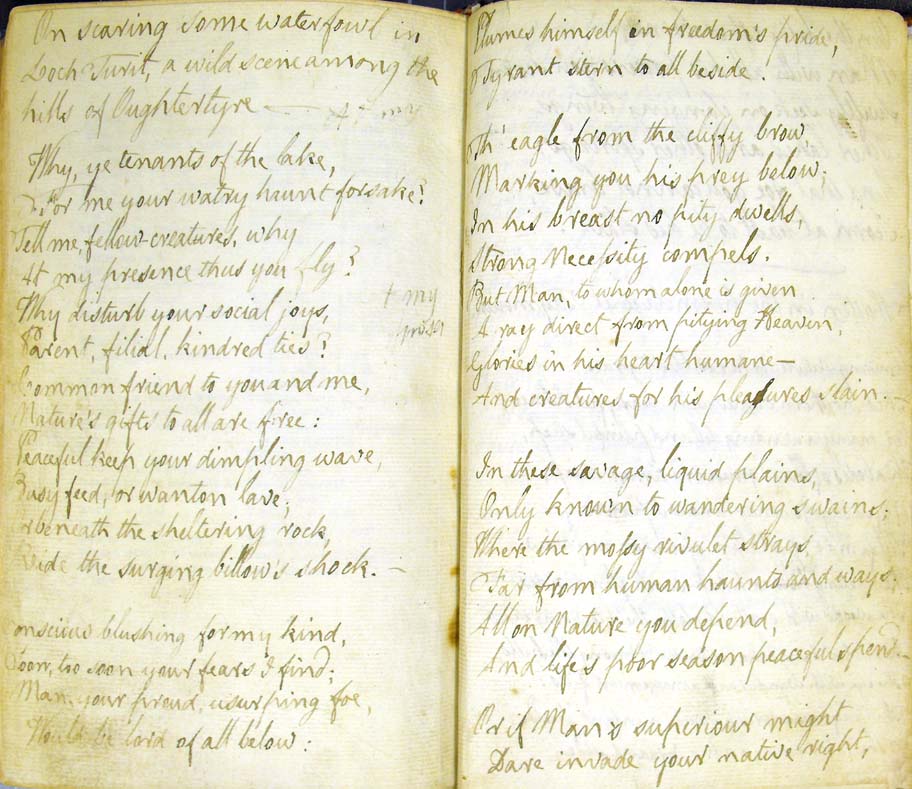 On scaring some waterfowl in
Loch Turit, a wild scene among the
hills of Oughtertyre —
Why, ye tenants of the lake,
For me your watry haunt forsake?
Tell me, fellow-creatures, why
At my presence thus you fly?
Why disturb your social joys,
+ my
Parent, filial, kindred ties?
Common friend to you and me,
Nature's gifts to all are free:
Peaceful keep your dimpling wave,
Busy feed, or wanton lave;
or beneath the sheltering rock,
Bide the surging billow's shock. —
Conscious blushing for my kind,
Soon, too soon your fears I find;
Man, your proud, usurping foe,
Would be lord of all below:
Plumes himself in freedom's pride,
Tyrant stern to all beside.
Th' eagle from the cliffy brow
Marking you his prey below,
In his breast no pity dwells
Strong Necessity compels.
But Man, to whom alone is given
A ray direct from pitying Heaven,
Glories in his heart humane —
And creatures for his pleasures slain. —
In these savage, liquid plains,
Only known to wandering swains,
Where the mossy rivulet strays,
Far from human haunts and ways;
All on Nature you depend,
And life's poor season peaceful spend. —
Or if Man's superiour might
Dare invade your native right,